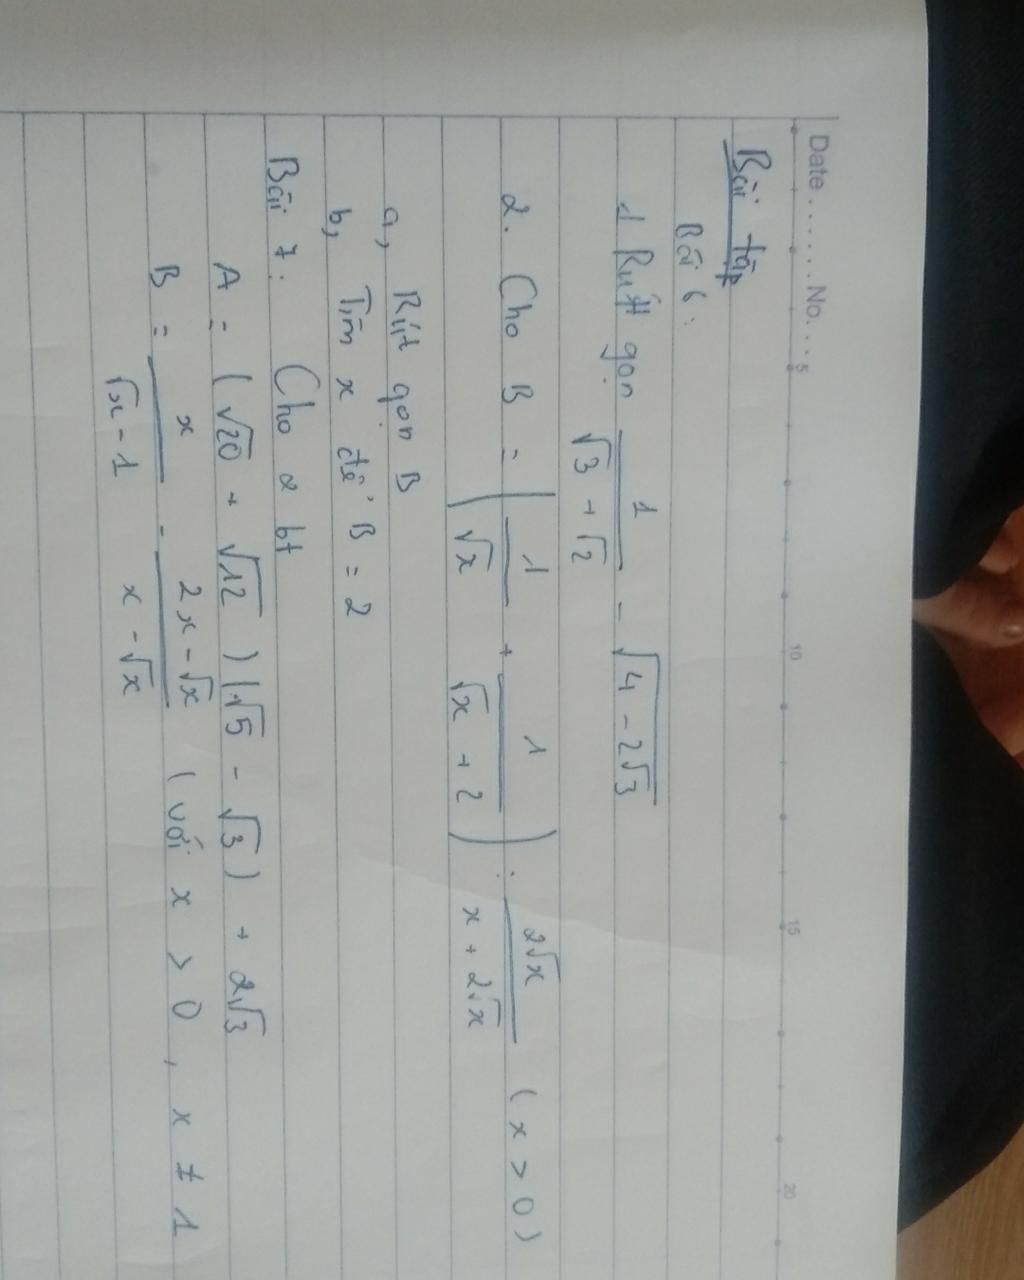 Date ....... No. ....
5 10 15 20
Bài tập
Bài 6:
1 Rút gọn 1/(√3 + √2) - √(4 - 2√3)
2. Cho B = (1/√x + 1/(√x + 2)) : 2√x/(x + 2√x) (x > 0)
a, Rút gọn B
b, Tìm x để B = 2
Bài 7: Cho 2 bt
A = (√20 + √12)(√5 - √3) + 2√3
B = x/(√x - 1) - (2x - √x)/(x - √x) (với x > 0, x ≠ 1